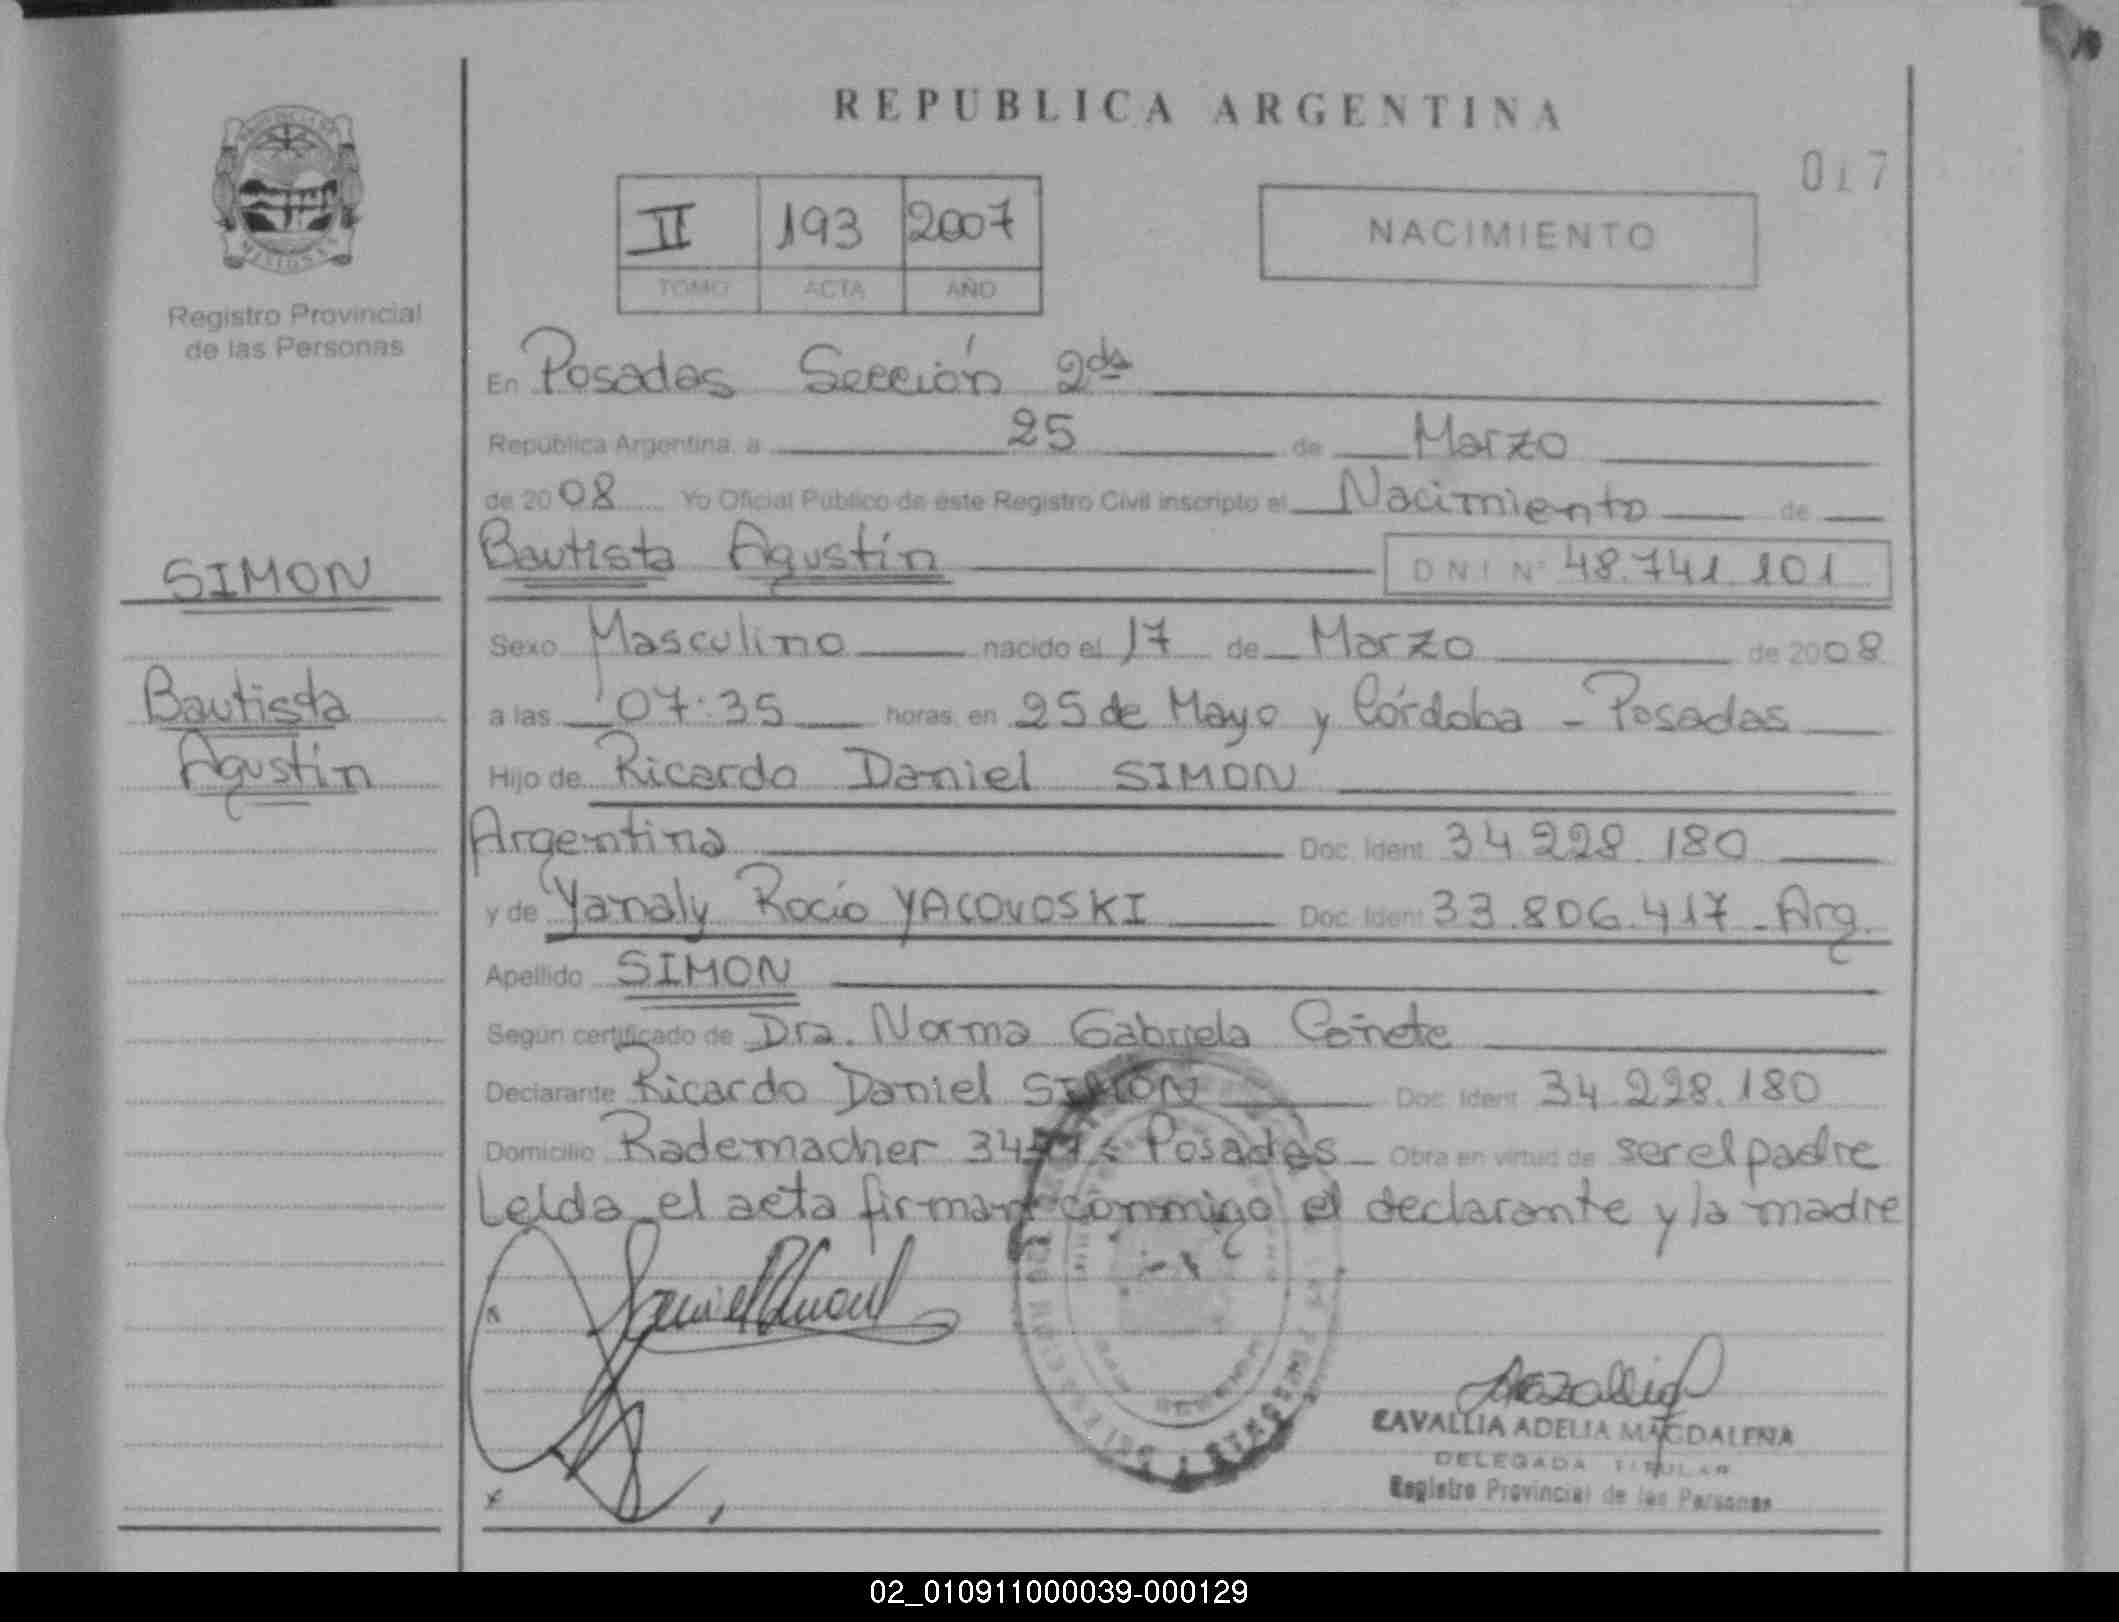 REPUBLICA ARGENTINA
017
II 193 2007
TOMO ACTA AÑO
NACIMIENTO
PROVINCIA DE
MISIONES
Registro Provincial
de las Personas
SIMON
Bautista
Agustín
En Posadas Sección 2da
República Argentina, a 25 de Marzo
de 2008 Yo Oficial Público de éste Registro Civil inscripto el Nacimiento de
Bautista Agustín DNI Nº 48.741.101
Sexo Masculino nacido el 17 de Marzo de 2008
a las 07:35 horas, en 25 de Mayo y Córdoba - Posadas
Hijo de Ricardo Daniel SIMON
Argentina Doc. Ident. 34.228.180
y de Yanaly Rocío YACOVOSKI Doc. Ident. 33.806.417 - Arg.
Apellido SIMON
Según certificado de Dra. Norma Gabriela Cañete
Declarante Ricardo Daniel SIMON Doc. Ident. 34.228.180
Domicilio Rademacher - Posadas - Obra en virtud de ser el padre
Leída el acta firman conmigo el declarante y la madre
CAVALLIA ADELIA MAGDALENA
DELEGADA TITULAR
Registro Provincial de las Personas
02_010911000039-000129